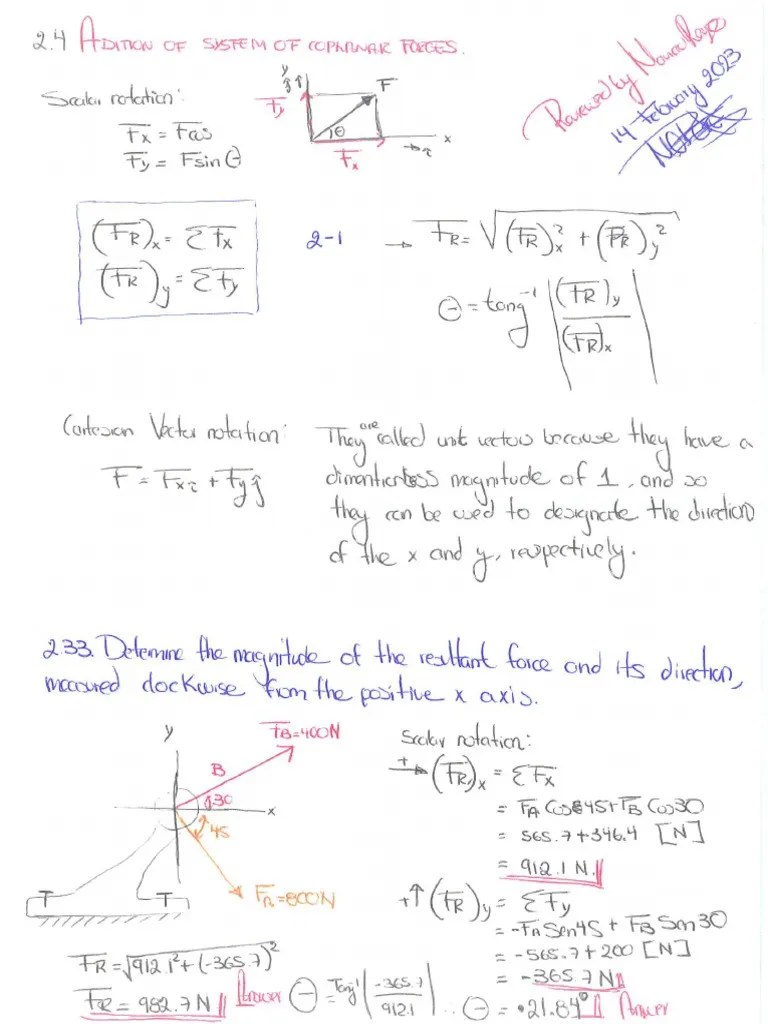 2.4 ADITION OF SYSTEM OF COPLANAR FORCES.
Reviewed by
14 February 2023
Scalar notation:
y
j
Fy
F
θ
x
Fx
i
Fx = Fcos
Fy = Fsin θ
(FR)x = ΣFx
(FR)y = ΣFy
2-1
→ FR = √(FR)x² + (FR)y²
θ = tang⁻¹ |(FR)y / (FR)x|
Cartesian Vector notation:
F = Fx i + Fy j
They are called unit vectors because they have a
dimentionless magnitude of 1, and so
they can be used to designate the direction
of the x and y, respectively.
2.33. Determine the magnitude of the resultant force and its direction,
measured clockwise from the positive x axis.
y
FB=400N
B
30
x
45
FA=800N
T T
Scalar notation:
+→ (FR)x = ΣFx
= FA Cos45+FB Cos30
= 565.7+346.4 [N]
= 912.1 N.
+↑ (FR)y = ΣFy
= -FA Sen45 + FB Sen30
= -565.7+200 [N]
= -365.7 N
FR = √912.1² + (-365.7)²
FR = 982.7 N Answer
θ = Tang⁻¹ |-365.7 / 912.1| ∴ θ = 21.84° Answer